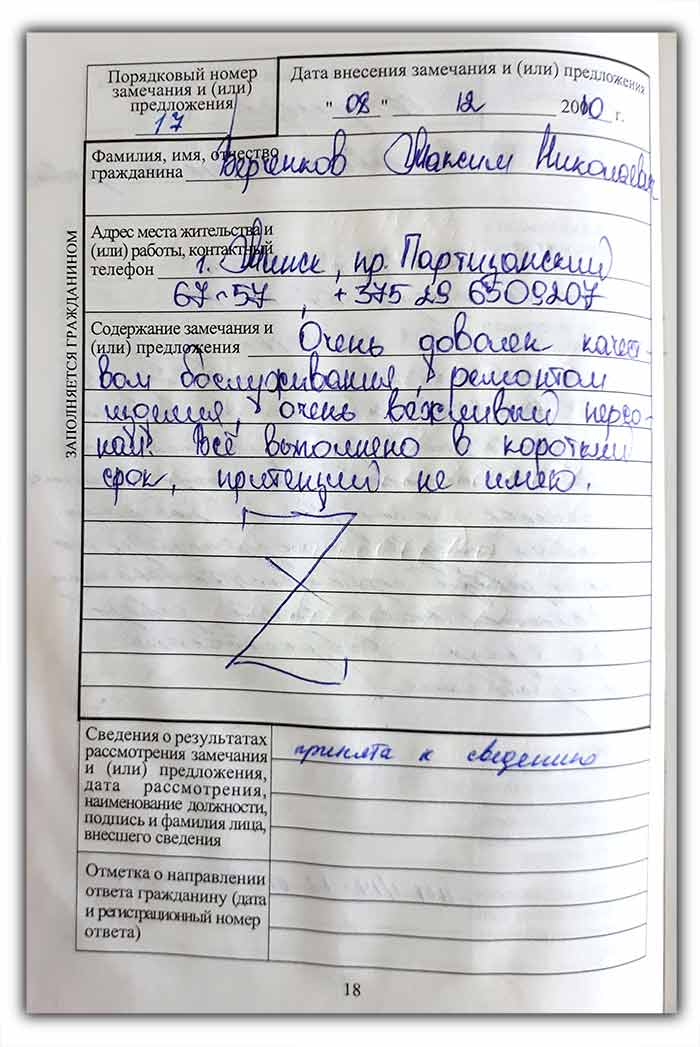 Порядковый номер
замечания и (или)
предложения
17
Дата внесения замечания и (или) предложения
" 08 " 12 2010 г.
ЗАПОЛНЯЕТСЯ ГРАЖДАНИНОМ
Фамилия, имя, отчество
гражданина Верченков Максим Николаевич
Адрес места жительства и
(или) работы, контактный
телефон г. Минск, пр. Партизанский
67-57, +375 29 6509207
Содержание замечания и
(или) предложения Очень доволен качест-
вом обслуживания, ремонтом
изделия, очень вежливый персо-
нал! Всё выполнено в короткий
срок, притензий не имею.
Сведения о результатах
рассмотрения замечания
и (или) предложения,
дата рассмотрения,
наименование должности,
подпись и фамилия лица,
внесшего сведения
принята к сведению
Отметка о направлении
ответа гражданину (дата
и регистрационный номер
ответа)
18